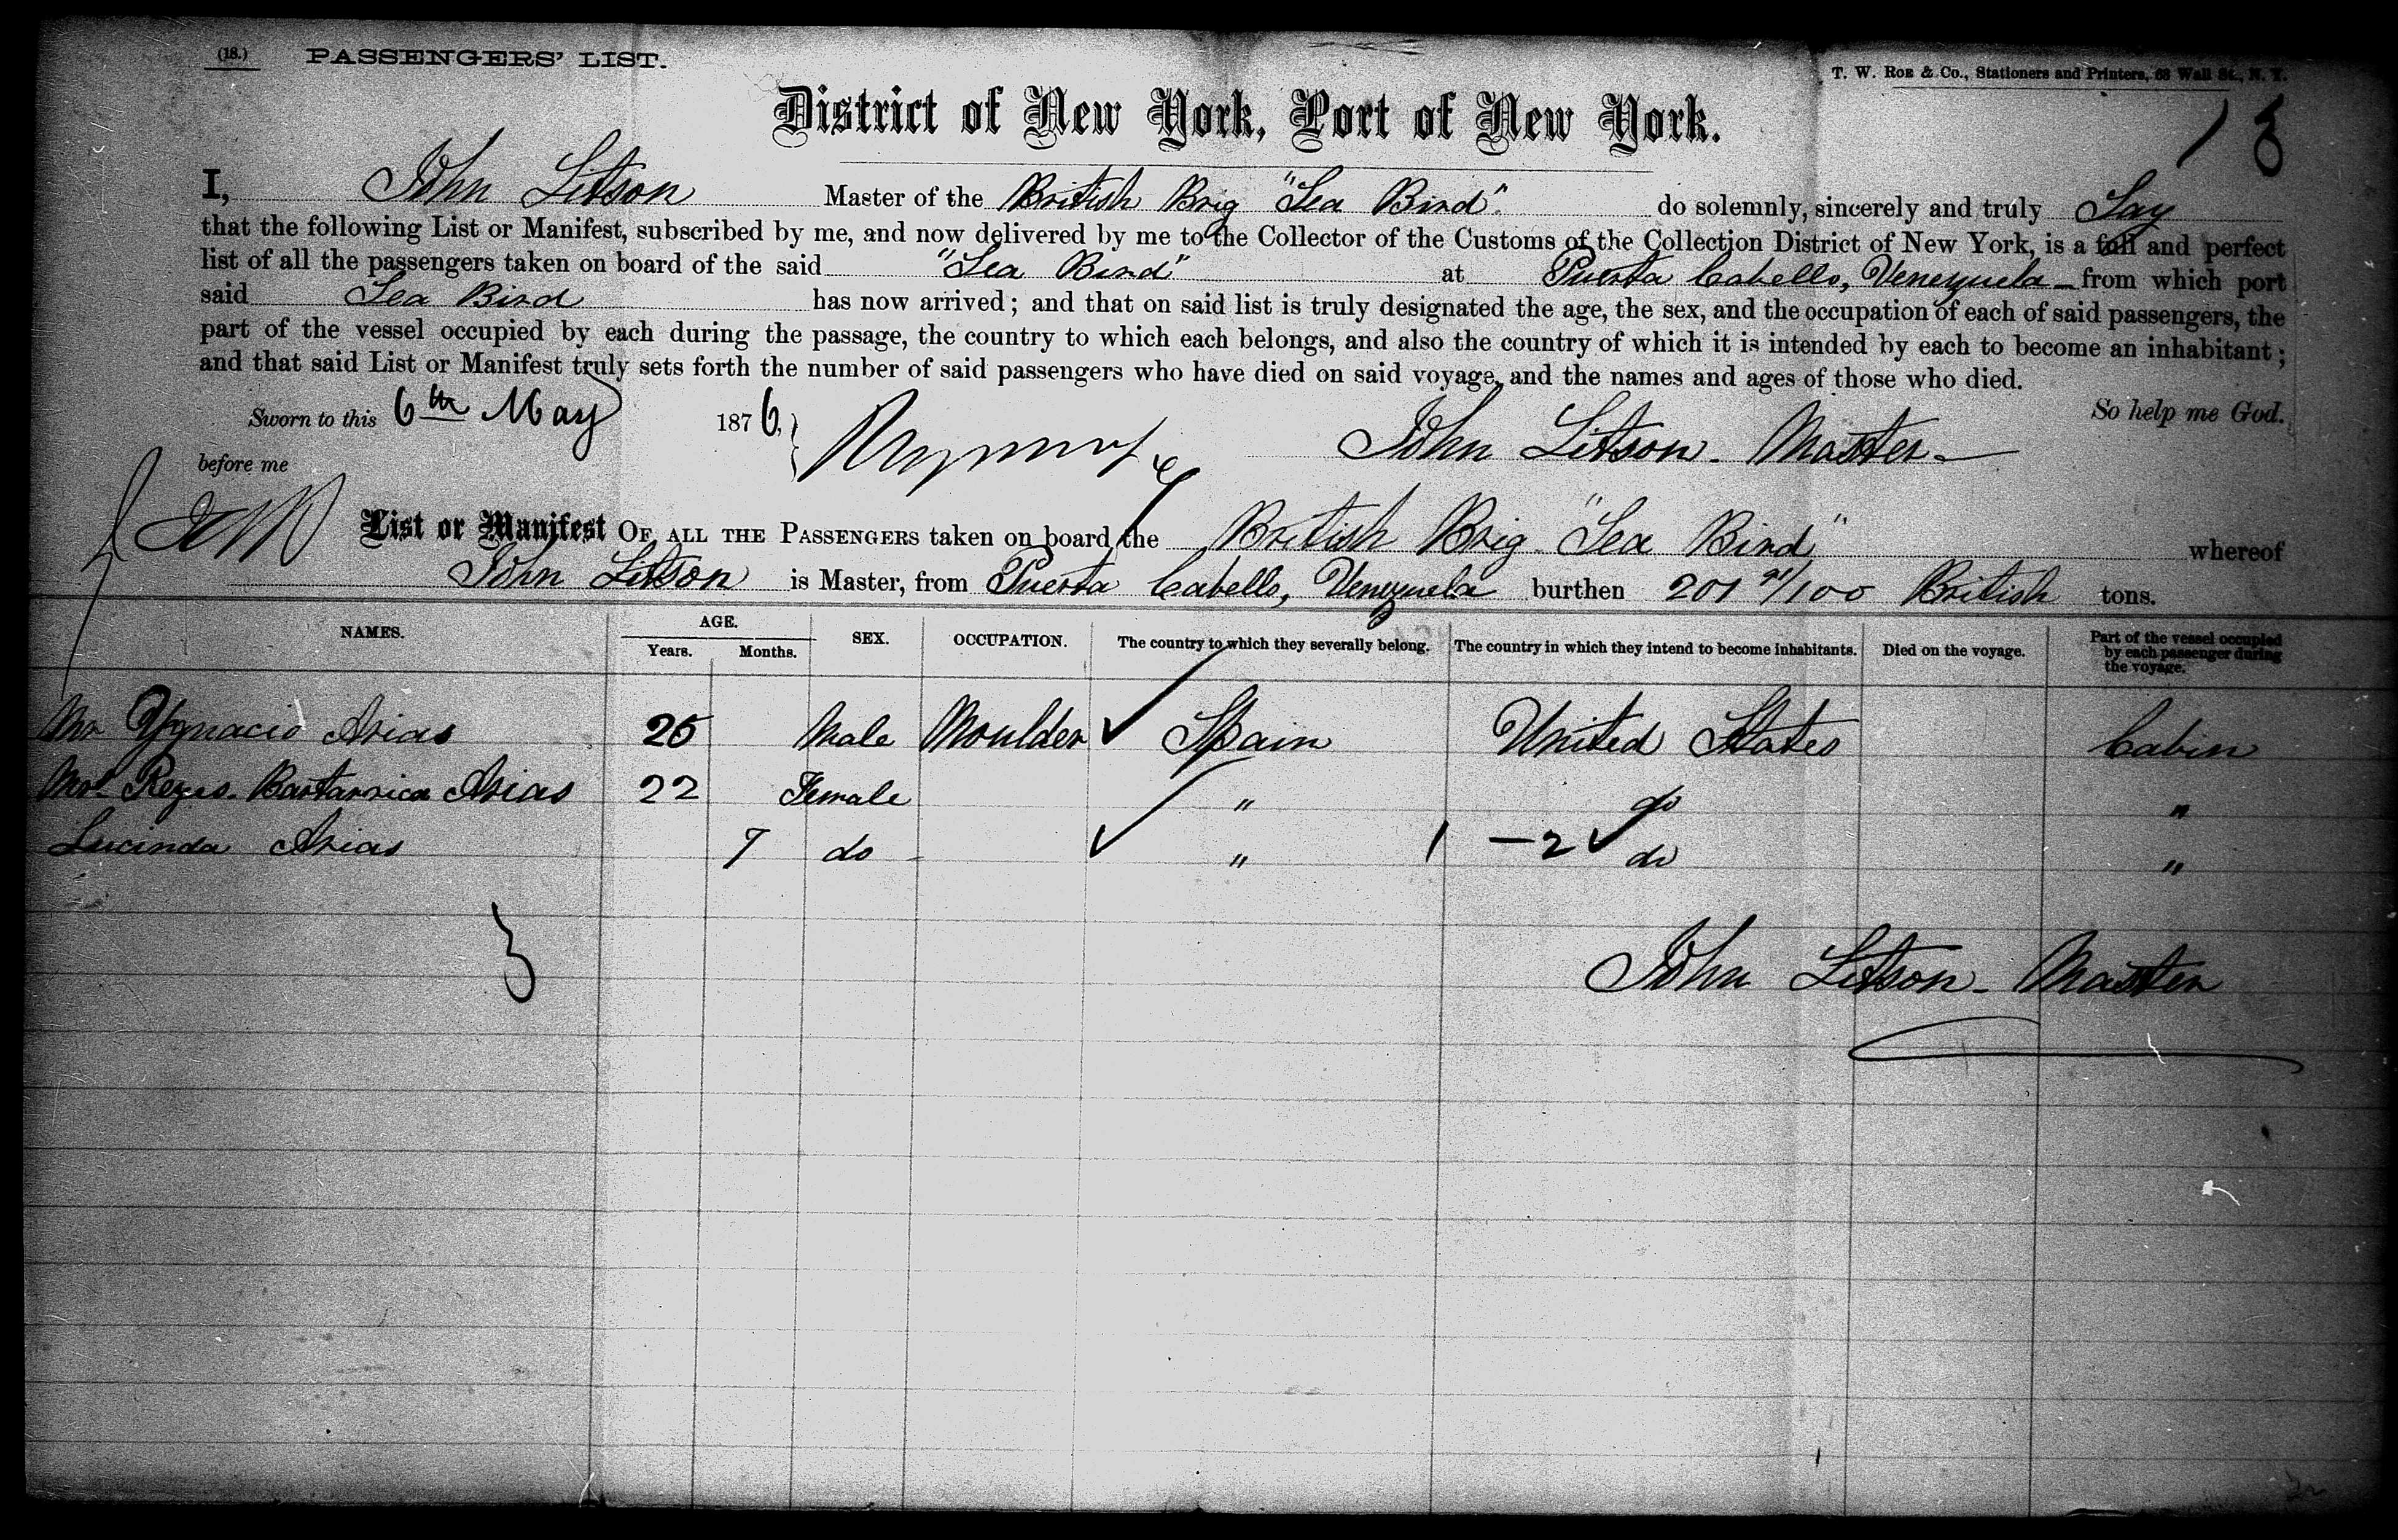 (18.) PASSENGERS' LIST.
T. W. ROE & Co., Stationers and Printers, 68 Wall St., N. Y.
District of New York, Port of New York.
I, John Litson Master of the British Brig "Sea Bird". do solemnly, sincerely and truly Say
that the following List or Manifest, subscribed by me, and now delivered by me to the Collector of the Customs of the Collection District of New York, is a full and perfect
list of all the passengers taken on board of the said "Sea Bird" at Puerta Cabello, Venezuela – from which port
said Sea Bird has now arrived; and that on said list is truly designated the age, the sex, and the occupation of each of said passengers, the
part of the vessel occupied by each during the passage, the country to which each belongs, and also the country of which it is intended by each to become an inhabitant;
and that said List or Manifest truly sets forth the number of said passengers who have died on said voyage, and the names and ages of those who died.
Sworn to this 6th May 1876, So help me God.
before me John Litson - Master -
List or Manifest OF ALL THE PASSENGERS taken on board the British Brig "Sea Bird" whereof
John Litson is Master, from Puerta Cabello, Venezuela burthen 201 /100 British tons.
NAMES. AGE. Years. Months. SEX. OCCUPATION. The country to which they severally belong. The country in which they intend to become inhabitants. Died on the voyage. Part of the vessel occupied by each passenger during the voyage.
Mr Ygnacio Arias 25 Male Moulder Spain United States Cabin
Mrs. Reyes. Arias 22 Female " do "
Lucinda Arias 7 do - " 1 – 2 do "
3
John Litson - Master